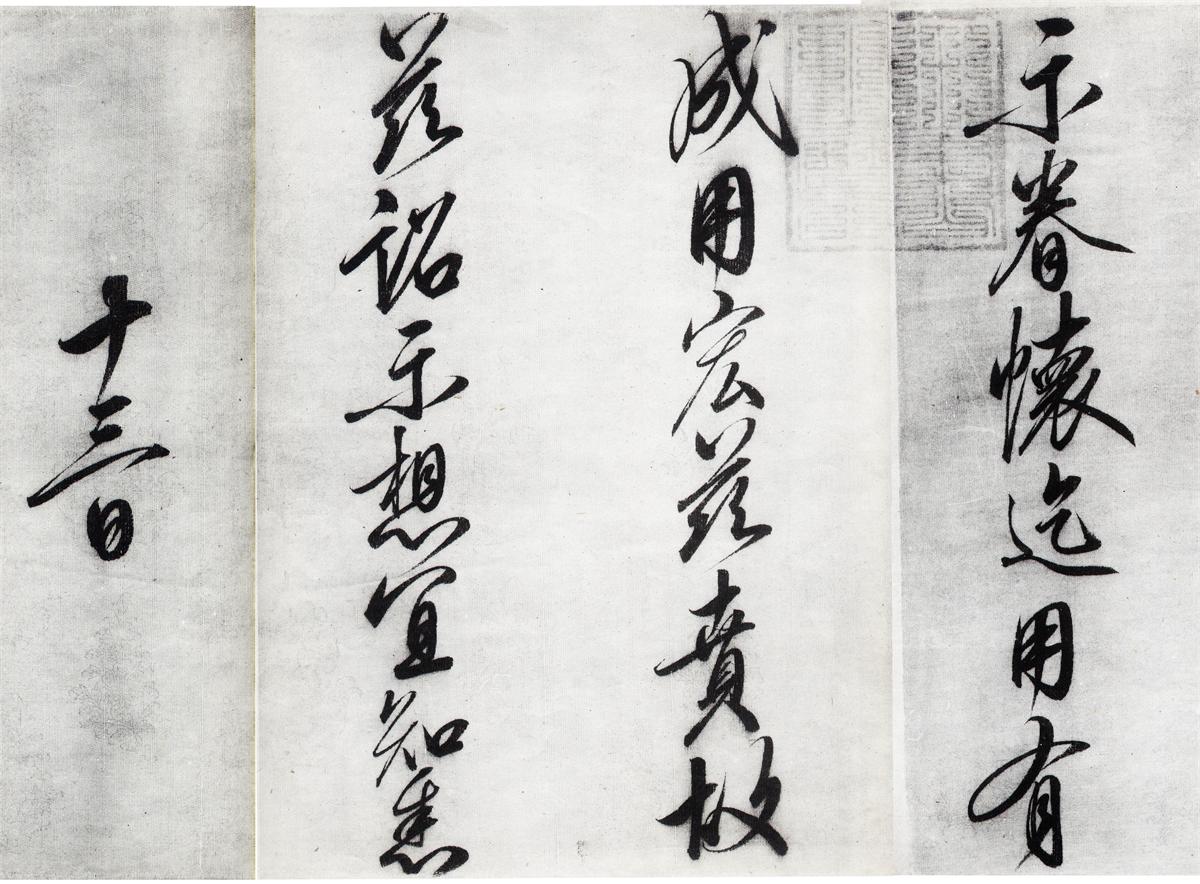 示眷懷迄用有
成用宏茲賁故
茲詔示想宜知悉
十三日